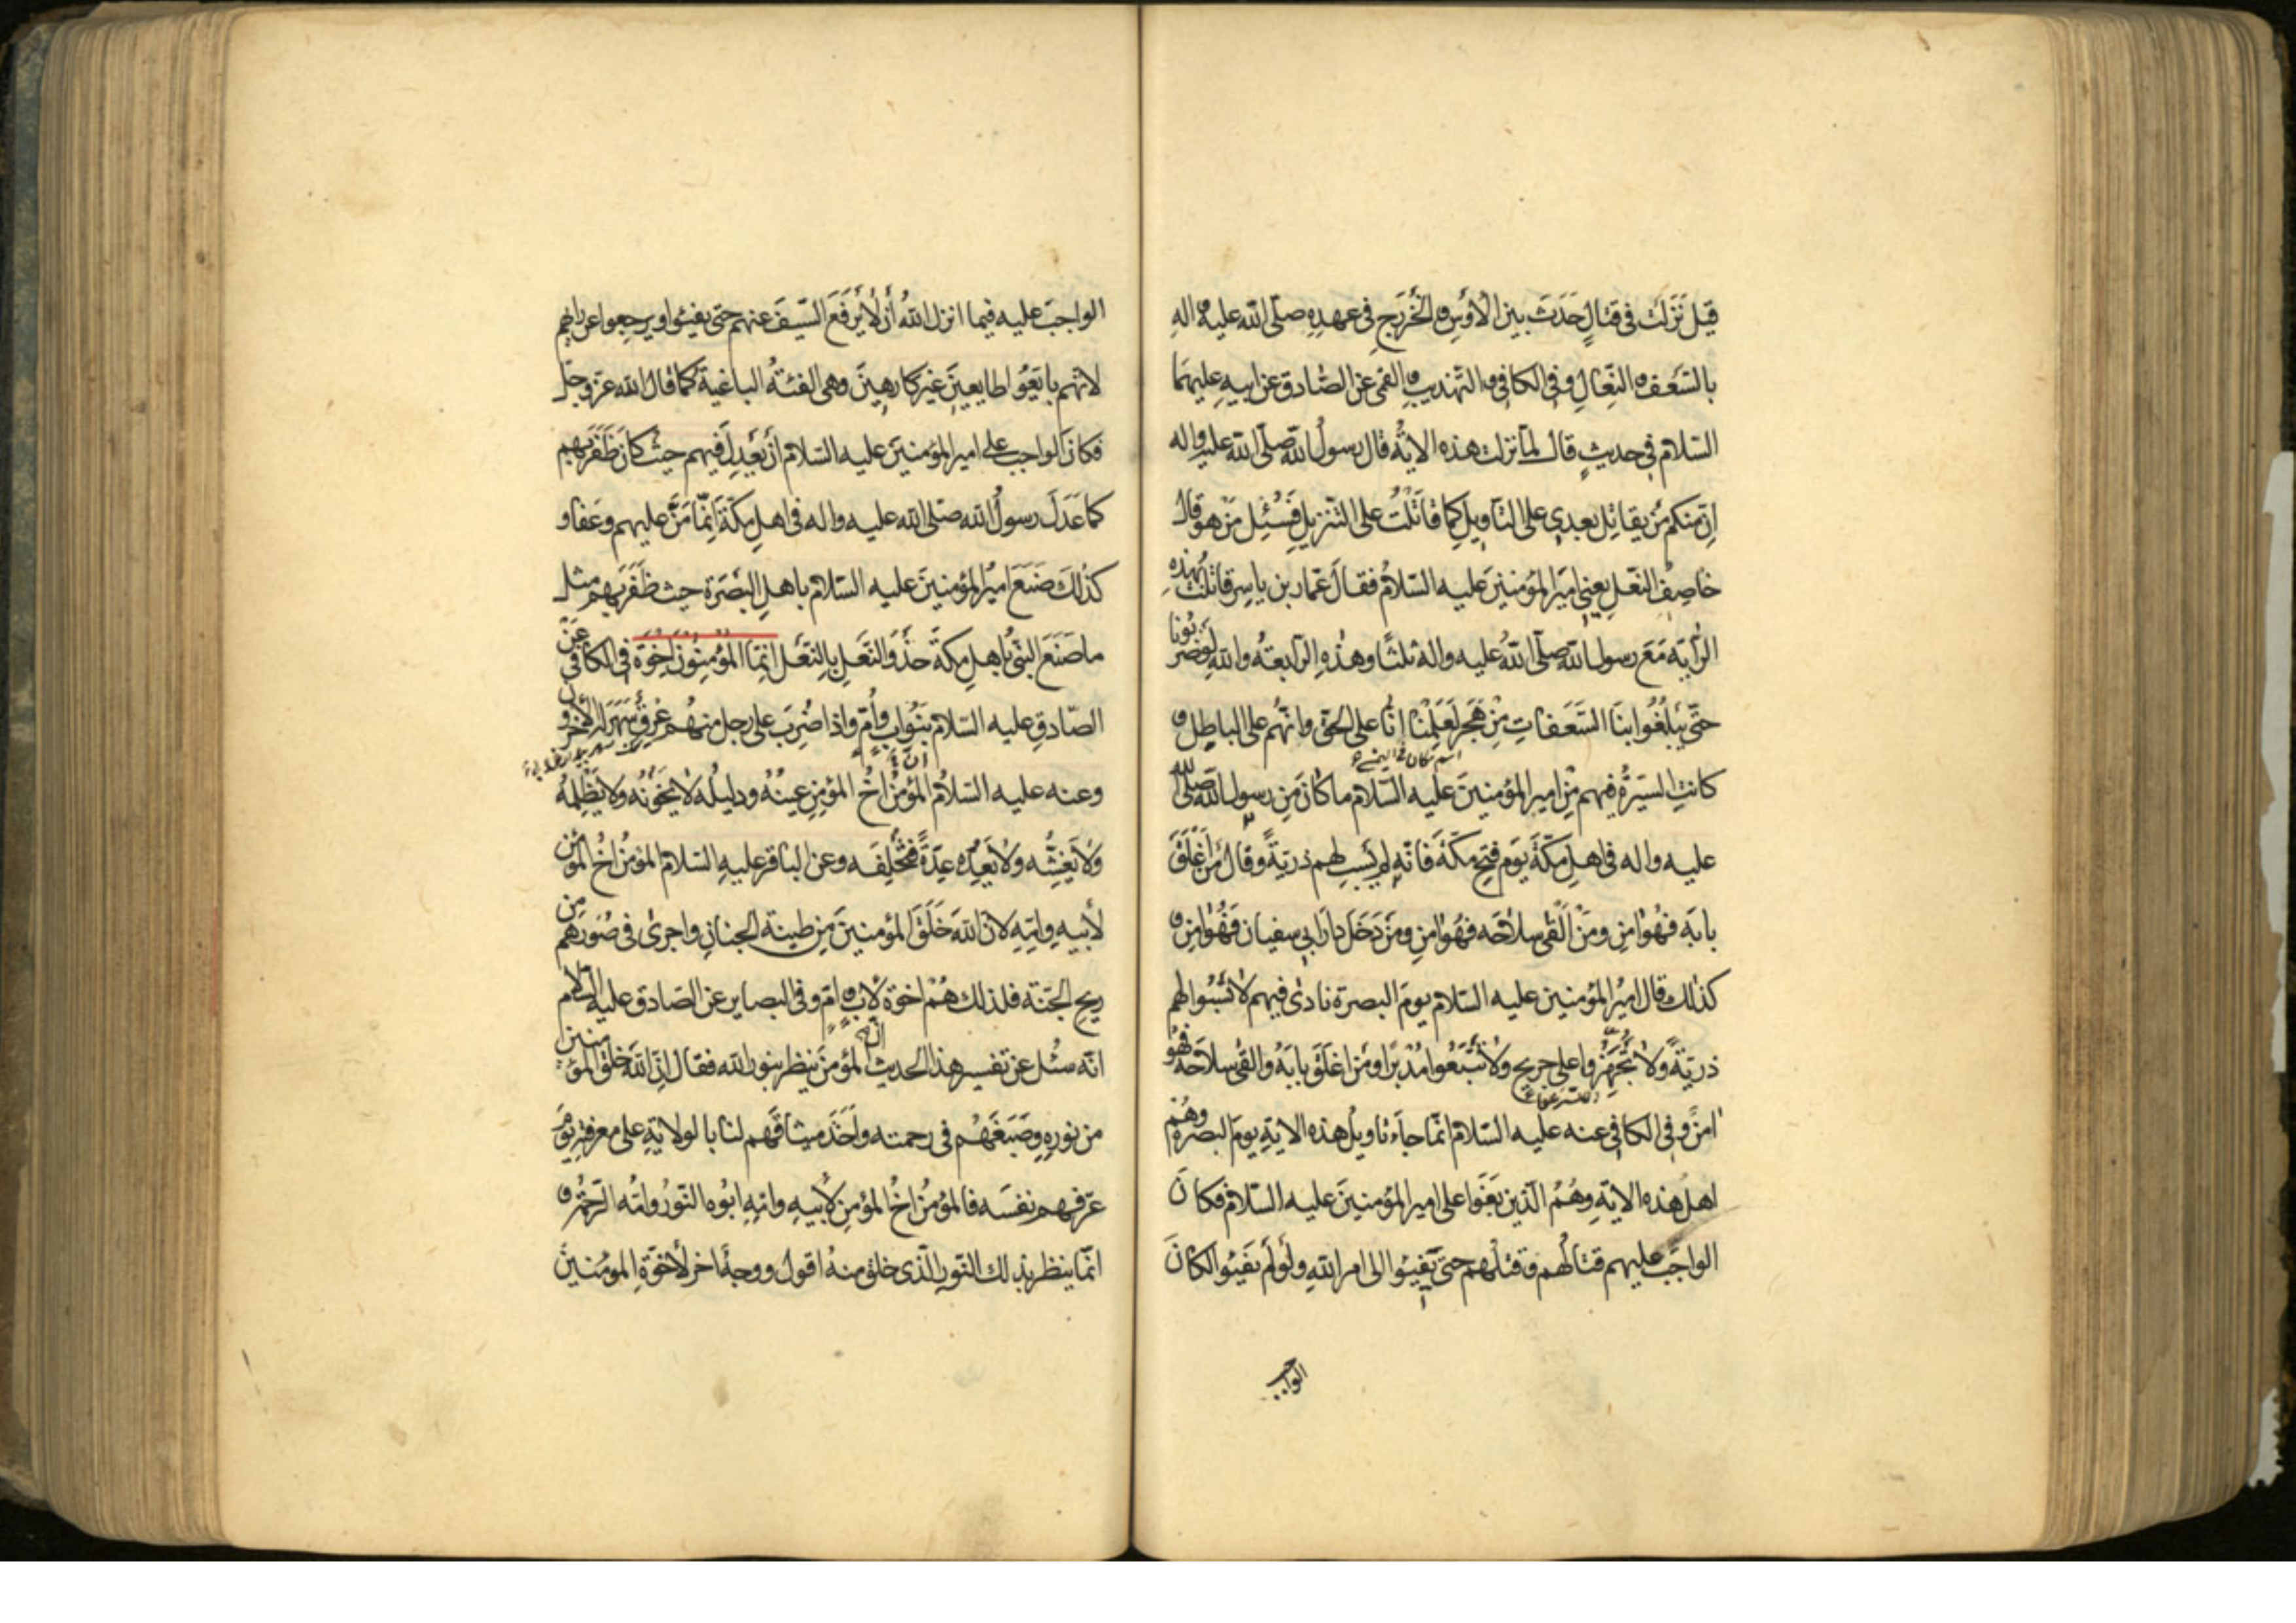 قيل نَزَلَت فى قتالٍ حَدَثَ بين الأوْسِ و الخَزْرَجِ فى عهدِهِ صلّى الله عليه و اله
بالسَّعَف و النِّعالِ و فى الكافى و التهذيب و القمى عن الصّادق عن ابيه عليهما
السّلام فى حديثٍ قال لمّا نزلت هذه الاية قال رسولُ الله صلّى الله عليه و اله
اِنّ منكم مَن يقاتِل بعدى على التأويلِ كما قاتَلْتُ على التنزيلِ فَسُئِل مَن هو قال
خاصِفُ النعلِ يعنى اميرَ المؤمنينَ عليه السّلامُ فقالَ عمّار بن ياسِر قاتلتُ بهذه
الرّاية مَعَ رسول الله صلّى اللهُ عليه و اله ثلثًا و هذهِ الرّابعةُ و اللهِ لو ضربونا
حتّى يَبلُغُوا بنَا السَّعَفاتِ مِنْ هَجَر لَعَلِمْنا انّا على الحقّ و انّهُم على الباطِل و
اسم مكان فى اليمن
كانتِ السّيرَةُ فيهم مِنْ امير المؤمنينَ عليه السّلام ما كانَ مِن رسول الله صلّى الله
عليه و اله فى اهلِ مكّةَ يَوم فتحِ مكّة فانّه لم يَسبِ لهم ذريّةً و قال مَن اَغْلَقَ
بابَه فهُوَ امِن و مَنْ اَلْقى سلاحَه فهُوَ امِن و مَن دَخَلَ دارَ ابى سفيان فَهُوَ امِن و
كذلك قال اميرُ المؤمنين عليه السّلام يومَ البصرة نادى فيهم لا تَسْبُوا لهم
ذريّةً و لا تُجْهِزُوا على جريحٍ و لا تَتْبَعُوا مُدْبرًا و مَن اغلَقَ بابَهُ و القى سلاحَهُ فهُوَ
امِنٌ و فى الكافى عنه عليه السّلام انّما جاءَ تاويلُ هذه الايةِ يومَ البصرة و هُم
اهلُ هذه الايةِ و هُمُ الّذين بَغَوا على امير المؤمنينَ عليه السّلام فكانَ
الواجبَ عليهم قتالُهم و قتلُهم حتّى يَفِيئوا الى امر اللهِ و لَو لَم يَفيئُوا لكانَ
الواجب
الواجبَ عليه فيما انزل اللهُ أن لا يَرفَعَ السّيفَ عنهم حتى يفيئوا و يرجِعوا عن رايهم
لانّهم بايَعُوا طايعينَ غيرَ كارهينَ و هى الفئةُ الباغيةُ كما قال الله عزّ و جلّ
فكانَ الواجب على امير المؤمنينَ عليه السّلام أنْ يَعدِلَ فيهم حيث كانَ ظَفَرَ بهم
كما عَدَلَ رسولُ الله صلّى الله عليه و اله فى اهلِ مكّةَ اِنّما مَنَّ عليهم و عَفا و
كذلكَ صَنَعَ اميرُ المؤمنينَ عليه السّلام باهلِ البَصْرَةِ حيث ظَفَرَ بهم مثل
ما صَنَعَ النبىُّ بأهلِ مكةَ حذْوَ النَّعلِ بالنّعلِ اِنَّما المُؤْمِنُونَ اِخْوَةٌ فى الكافى عن
الصّادقِ عليه السّلام بَنُو ابٍ و أُمٍّ و اذا ضُرِبَ على رجل منهُم عِرقٌ سَهَرَ له الآخرون
و عنه عليه السّلامُ المؤمنُ اخُ المؤمِنِ عينُهُ و دليلُه لا يخونُه و لا يَظْلِمهُ
و لا يَغُشُّه و لا يَعِدُه عِدَةً فيُخْلِفَه و عن الباقر عليهِ السّلام المؤمنُ اخُ المؤمن
لأبيهِ و امّهِ لانّ اللهَ خَلَقَ المؤمنينَ مِن طينة الجنانِ و اجرى فى صُوَرِهم من
ريحِ الجنّة فلذلك هُمْ اخوة لأبٍ و امّ و فى البصاير عن الصّادق عليه السّلام
انّه سُئل عن تفسير هذا الحديث انّ المؤمنَ ينظر بنور الله فقال انّ اللهَ خلق المؤمنين
من نورِهِ و صَبَغَهُم فى رحمته و اَخَذَ ميثاقَهم لنا بالولايةِ على معرفته يومَ
عرّفهم نفسَه فالمؤمنُ اخُ المؤمنِ لأبيهِ و امّهِ ابُوه النّورُ و امّه الرّحمةُ و
انّما ينظر بذلك النّورِ الّذى خلق منهُ اقول و وجهٌ اخر لأخوّةِ المومنين